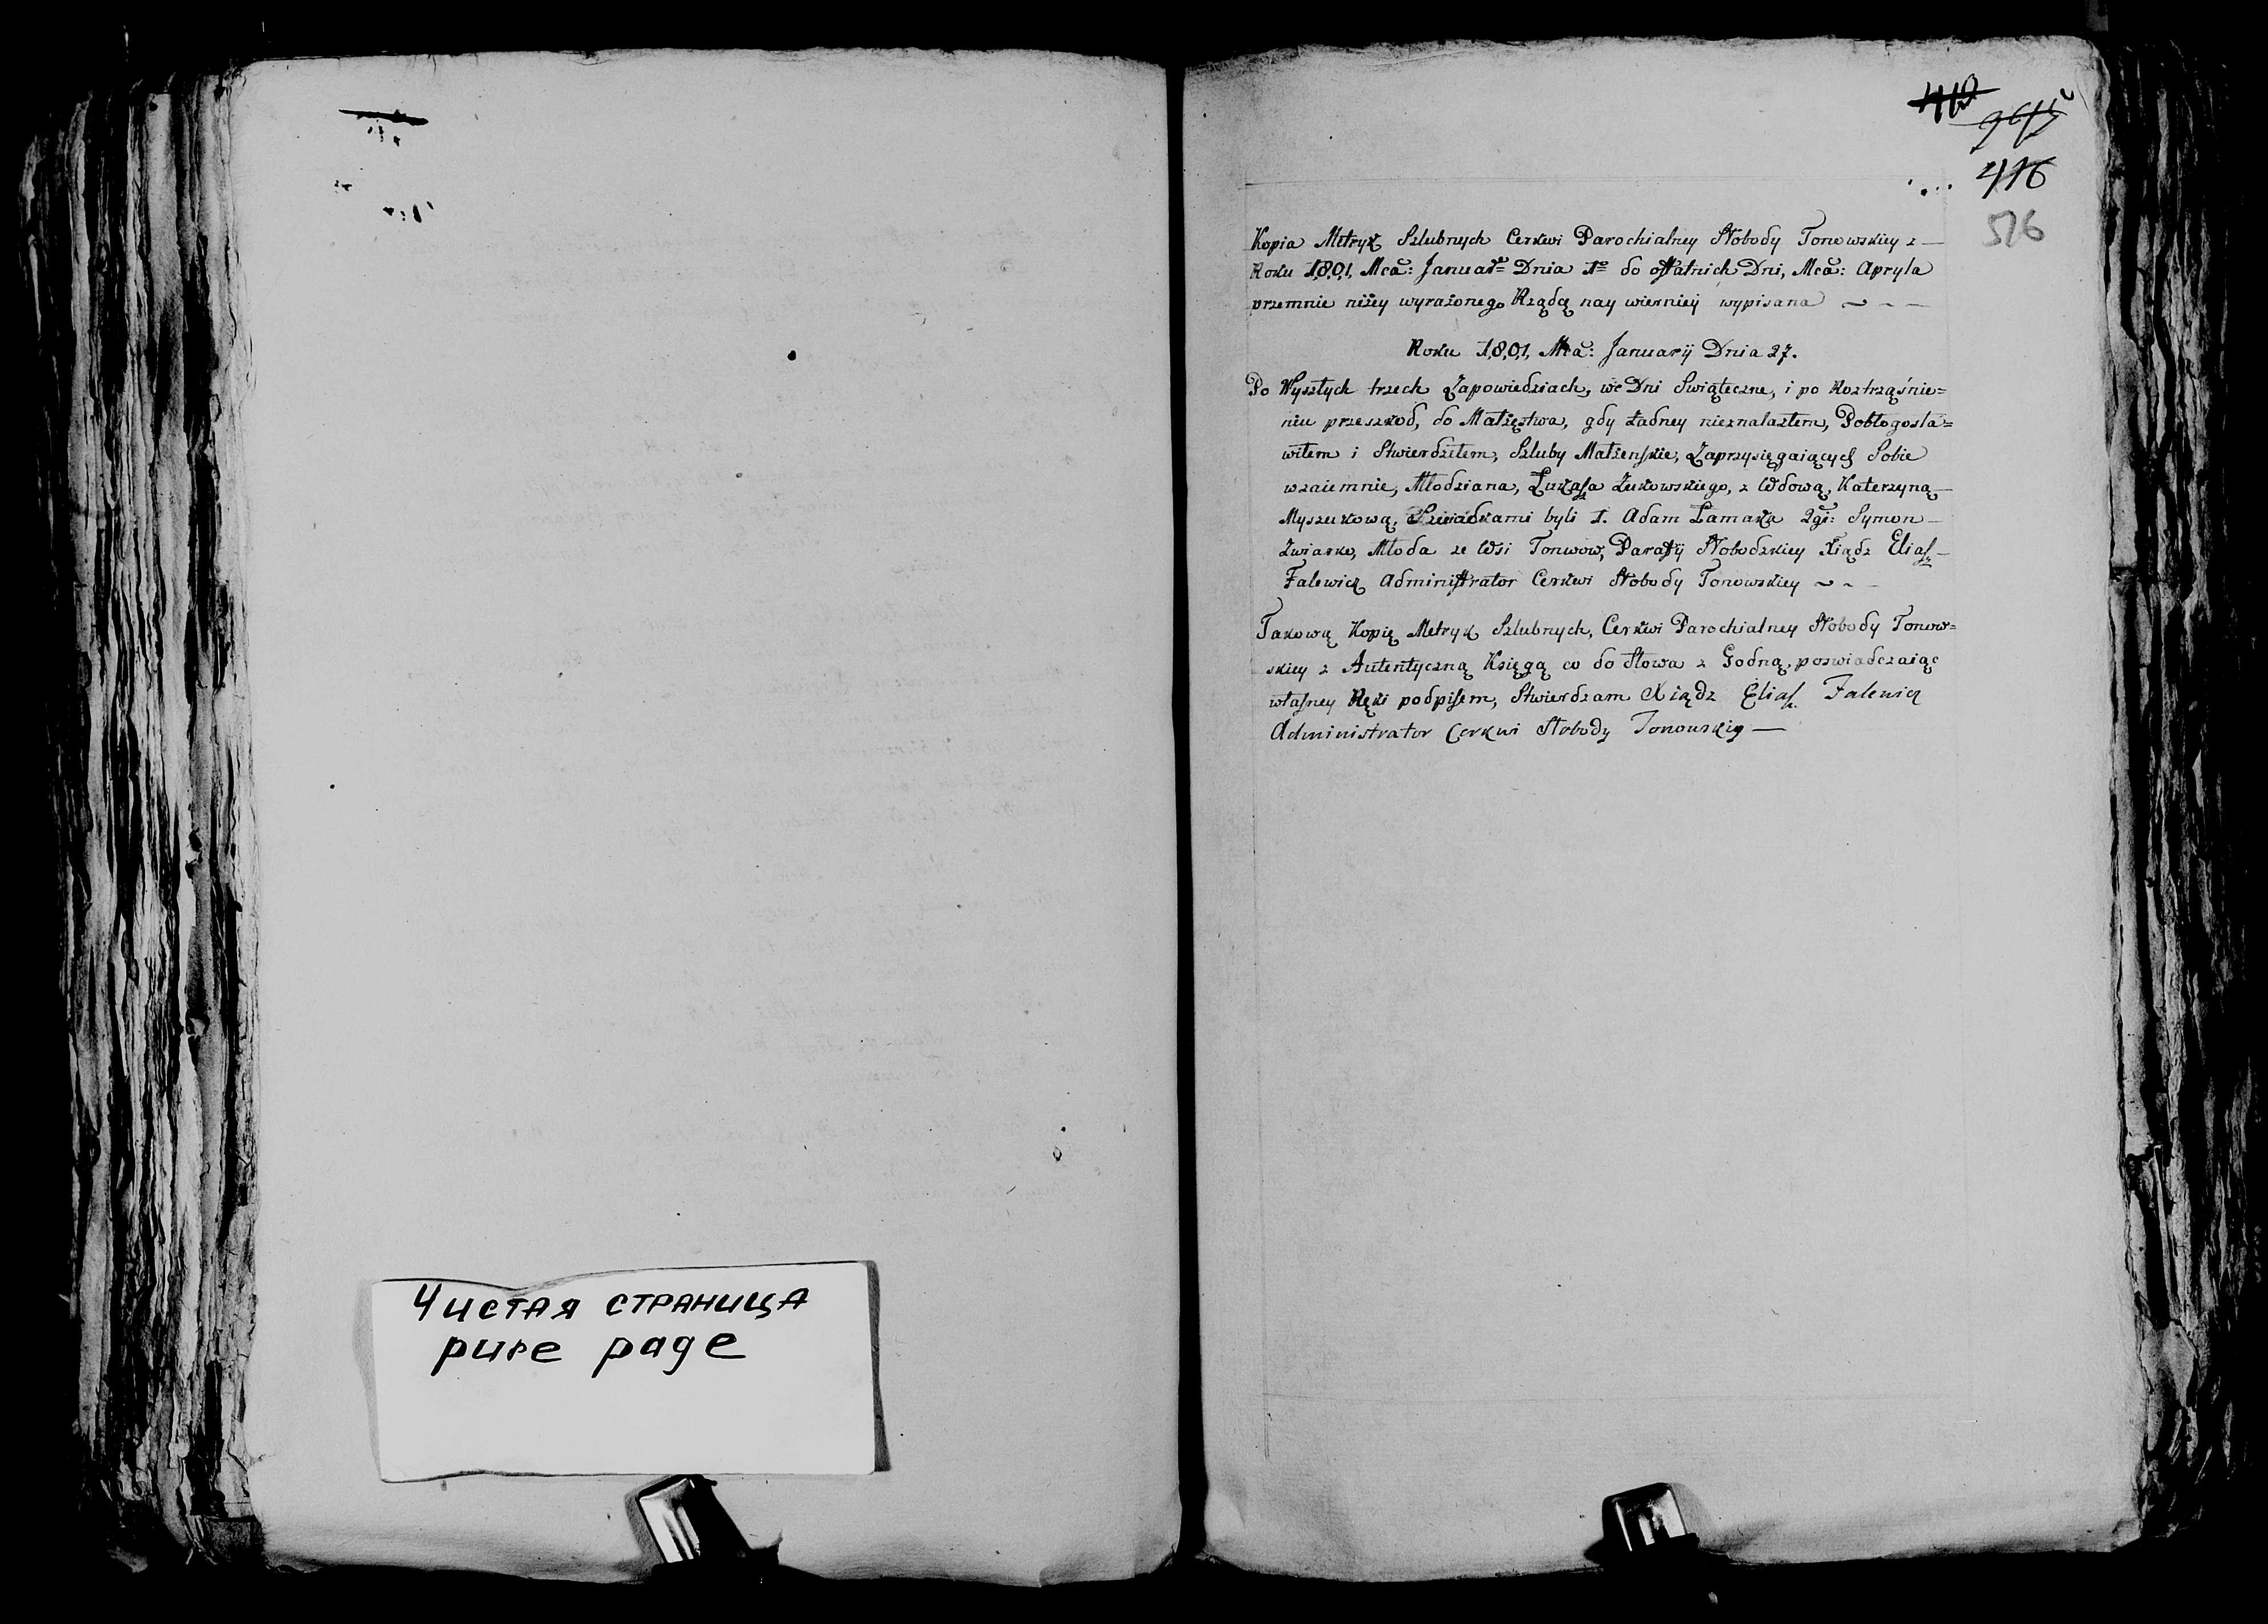 416
576
Kopia Metryk Szlubnych Cerkwi Parochialney Słobody Tonowskiey z
Roku 1801, Mca: Januar: Dnia 1 do ostatnich Dni, Mca: Apryla
przemnie niżey wyrażonego Rządcę nay wierniey wypisana
Roku 1801, Mca: Januarij Dnia 27.
Po Wyszłych trzech Zapowiedziach, we Dni Swiąteczne, i po Roztrząśnie=
niu przeszkod, do Małżęstwa, gdy żadney nieznalazłem, Pobłogosła=
wiłem i Stwierdziłem, Szluby Małżenskie, Zaprzysięgaiących Sobie
wzaiemnie, Młodziana, Łukasza Żukowskiego, z Wdową, Katerzyną
Myszukową, Swiadkami byli 1. Adam Łamaka 2gi: Symon
Zwiarko, Młoda ze Wsi Tonwow, Parafij Słobodzkiey Xiądz Eliasz
Falewicz Administrator Cerkwi Słobody Tonowskiey
Takową Kopię Metryk Szlubnych, Cerkwi Parochialney Słobody Tonow=
skiey z Autentyczną Księgą co do Słowa z Godną, poswiadczaiąc
własney Ręki podpisem, Stwierdzam Xiądz Eliasz Falewicz
Administrator Cerkwi Słobody Tonowskiey
Чистая страница
pure page